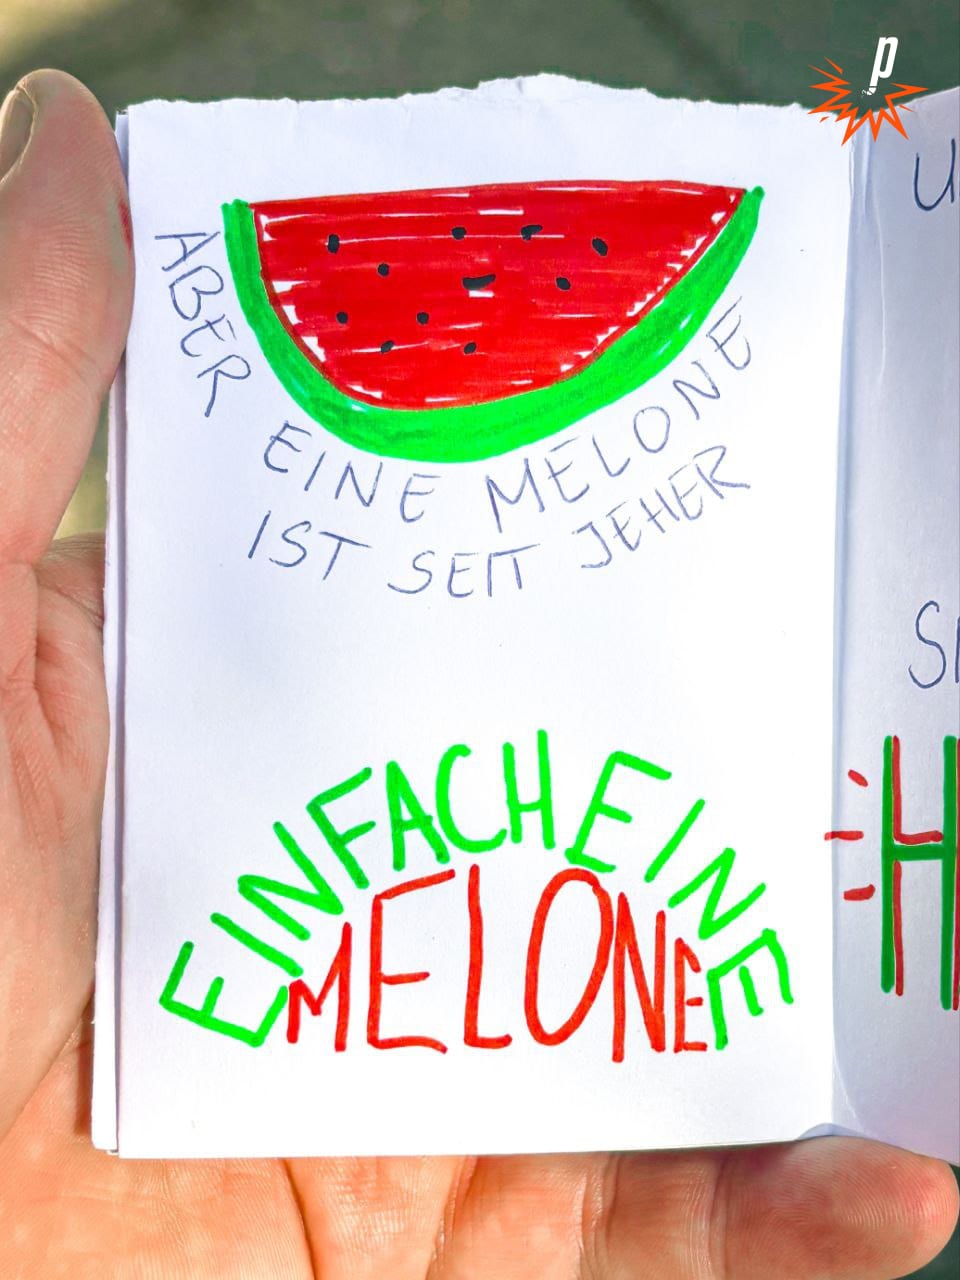 ABER EINE MELONE
IST SEIT JEHER
EINFACH EINE
MELONE
p